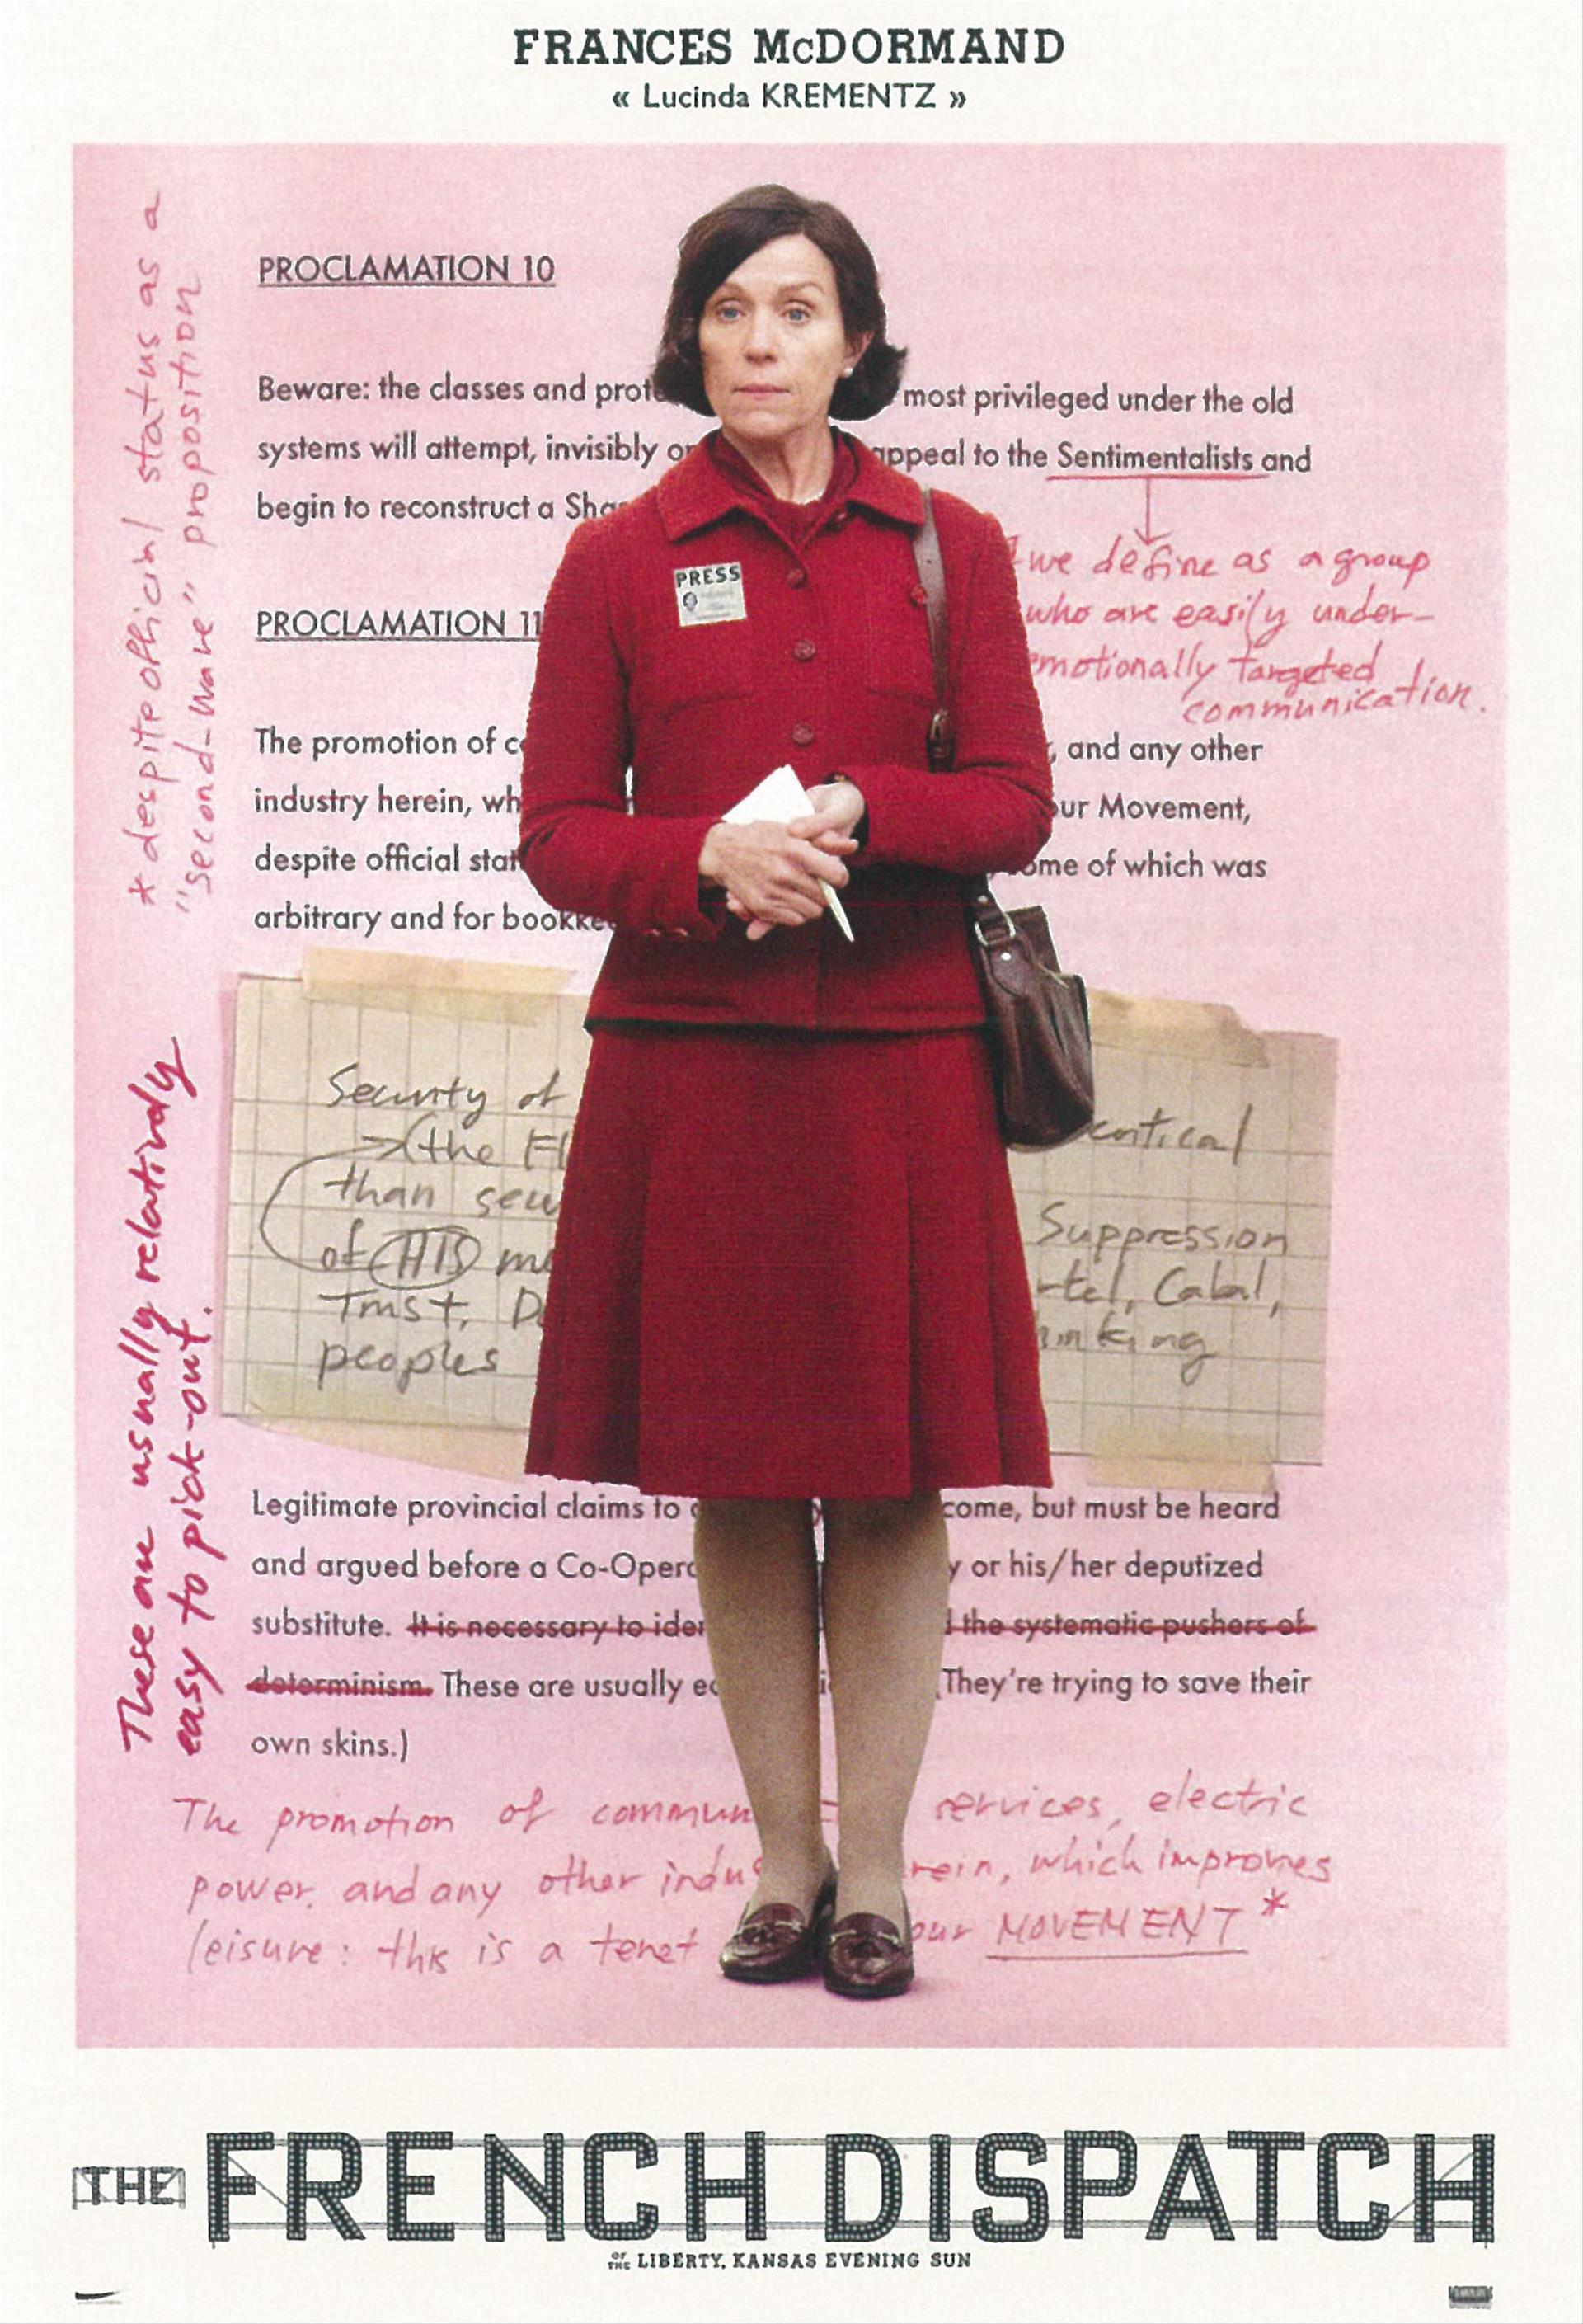 FRANCES McDORMAND
« Lucinda KREMENTZ »
* despite official status as a
"second-wave" proposition
PROCLAMATION 10
Beware: the classes and most privileged under the old
systems will attempt, invisibly appeal to the Sentimentalists and
begin to reconstruct a
we define as a group
who are easily under-
emotionally targeted
communication.
PRESS
PROCLAMATION 11
The promotion of , and any other
industry herein, our Movement,
despite official some of which was
arbitrary and for
Security of critical
the
than Suppression
of HIS Cabal,
Trust,
peoples
These are usually relatively
easy to pick-out.
Legitimate provincial claims to come, but must be heard
and argued before a or his/her deputized
substitute. It is necessary to the systematic pushers of
determinism. These are usually They're trying to save their
own skins.)
The promotion of services, electric
power, and any other which improves
leisure: this is a tenet our MOVEMENT*
THE FRENCH DISPATCH
OF THE LIBERTY, KANSAS EVENING SUN